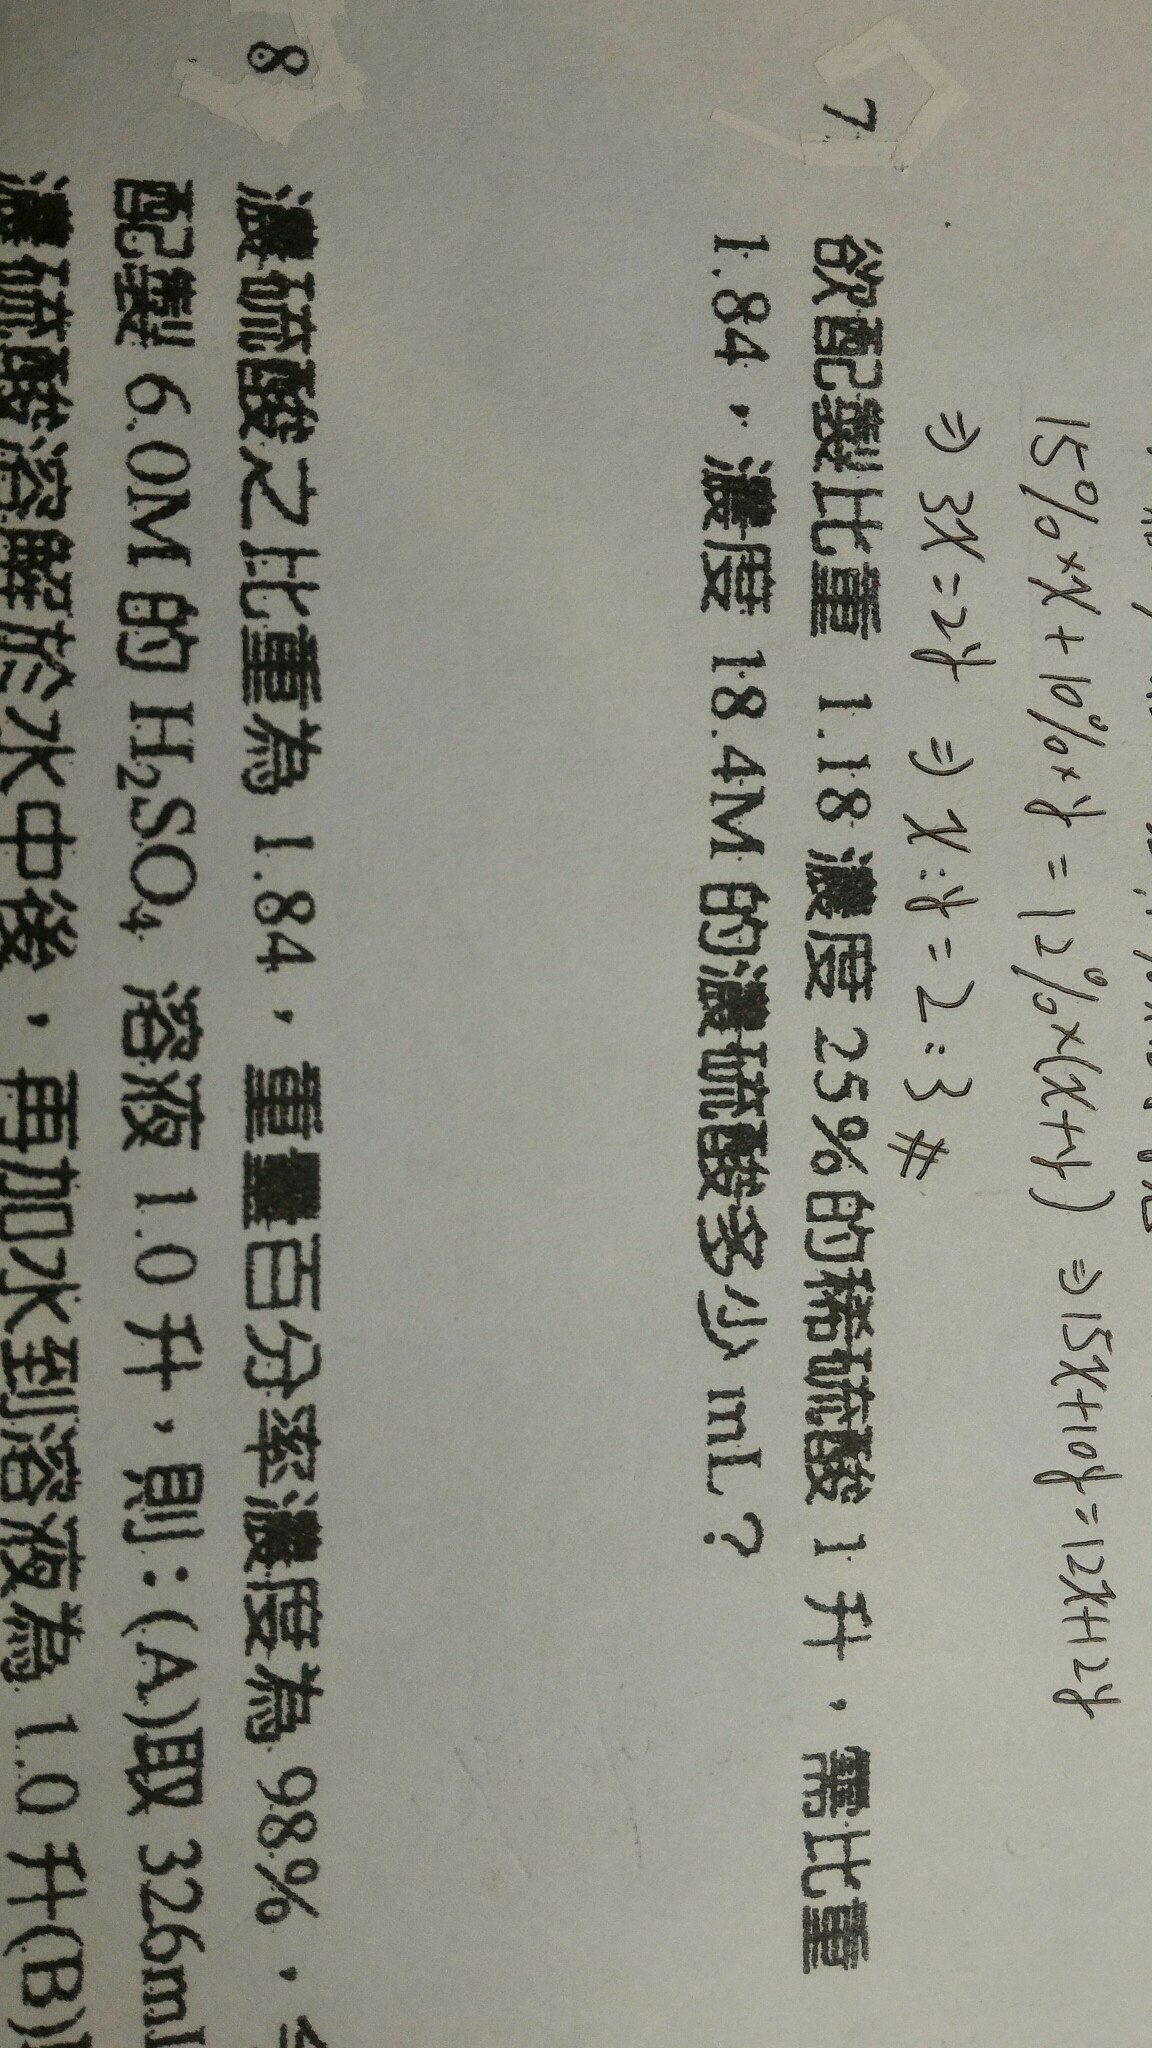 15%×x+10%×y=12%×(x+y) ⇒15x+10y=12x+12y
⇒ 3x=2y ⇒ x:y=2:3 #
7 欲配製比重 1.18 濃度 25%的稀硫酸 1 升，需比重
1.84，濃度 18.4M 的濃硫酸多少 mL？
8 濃硫酸之比重為 1.84，重量百分率濃度為 98%，
配製 6.0M 的 H₂SO₄ 溶液 1.0 升，則：(A)取 326ml
濃硫酸溶解於水中後，再加水到溶液為 1.0 升(B)